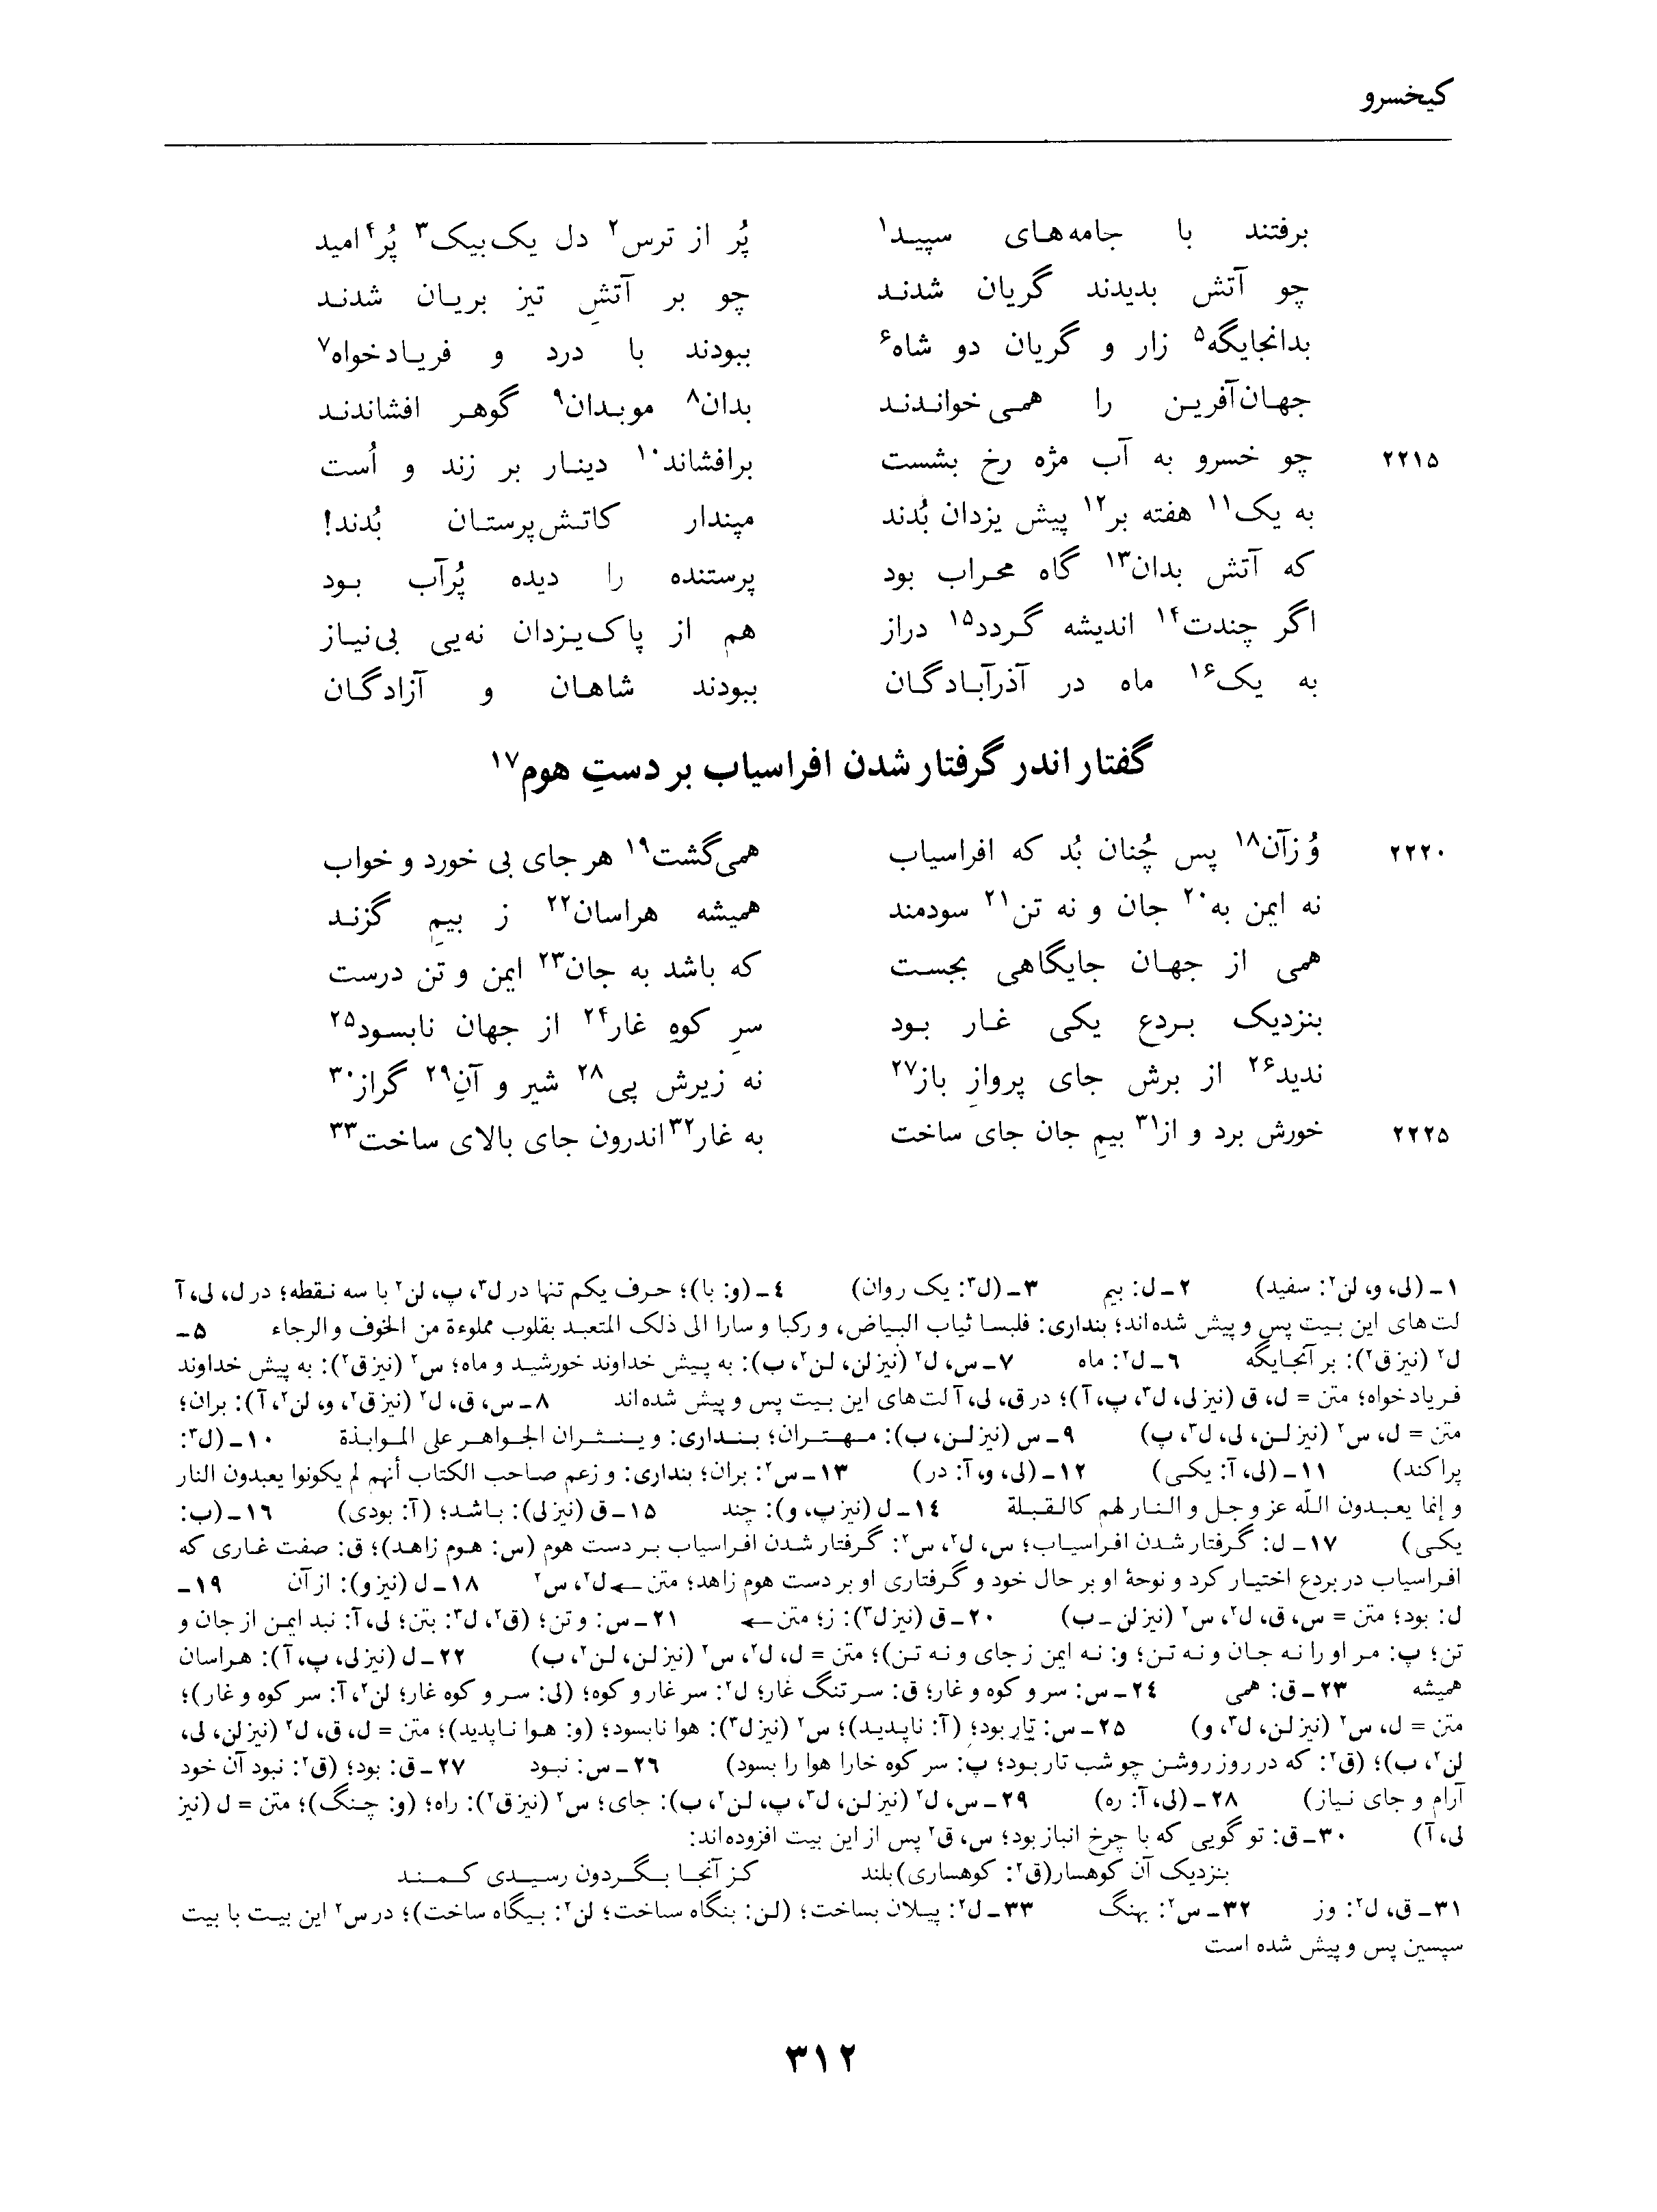 کیخسرو
برفتند با جامه‌های سپید۱ پُر از ترس۲ دل یک‌بیک۳ پُر۴ امید
چو آتش بدیدند گریان شدند چو بر آتشِ تیز بریان شدند
بدانجایگه۵ زار و گریان دو شاه۶ ببودند با درد و فریادخواه۷
جهان‌آفرین را همی‌خواندند بدان۸ موبدان۹ گوهر افشاندند
۲۲۱۵ چو خسرو به آب مژه رخ بشست برافشاند۱۰ دینار بر زند و اُست
به یک۱۱ هفته بر۱۲ پیش یزدان بُدند مپندار کاتش‌پرستان بُدند!
که آتش بدان۱۳ گاه محراب بود پرستنده را دیده پُرآب بود
اگر چندت۱۴ اندیشه گردد۱۵ دراز هم از پاک‌یزدان نه‌یی بی‌نیاز
به یک۱۶ ماه در آذرآبادگان ببودند شاهان و آزادگان
گفتار اندر گرفتار شدن افراسیاب بر دستِ هوم۱۷
۲۲۲۰ وُزآن۱۸ پس چُنان بُد که افراسیاب همی‌گشت۱۹ هر جای بی خورد و خواب
نه ایمن به۲۰ جان و نه تن۲۱ سودمند همیشه هراسان۲۲ ز بیمِ گزند
همی از جهان جایگاهی بجست که باشد به جان۲۳ ایمن و تن درست
بنزدیک بردع یکی غار بود سرِ کوهِ غار۲۴ از جهان نابسود۲۵
ندید۲۶ از برش جای پروازِ باز۲۷ نه زیرش پی۲۸ شیر و آنِ۲۹ گراز۳۰
۲۲۲۵ خورش برد و از۳۱ بیمِ جان جای ساخت به غار۳۲ اندرون جای بالای ساخت۳۳
۱ـ (لی، و، لن۲: سفید) ۲ـ ل: بیم ۳ـ (ل۳: یک روان) ۴ـ (و: با)؛ حرف یکم تنها در ل۳، پ، لن۲ با سه نقطه؛ در ل، لی، آ
لت‌های این بیت پس و پیش شده‌اند؛ بنداری: فلبسا ثیاب البیاض، و رکبا و سارا الی ذلک المتعبد بقلوب مملوءة من الخوف والرجاء ۵ـ
ل۲ (نیز ق۲): بر آنجایگه ۶ـ ل۲: ماه ۷ـ س، ل۲ (نیز لن، لن۲، ب): به پیش خداوند خورشید و ماه؛ س۲ (نیز ق۲): به پیش خداوند
فریادخواه؛ متن = ل، ق (نیز لی، ل۳، پ، آ)؛ در ق، لی، آ لت‌های این بیت پس و پیش شده‌اند ۸ـ س، ق، ل۲ (نیز ق۲، و، لن۲، آ): بران؛
متن = ل، س۲ (نیز لن، لی، ل۳، پ) ۹ـ س (نیز لن، ب): مهتران؛ بنداری: وینثران الجواهر علی الموابذة ۱۰ـ (ل۳:
پراکند) ۱۱ـ (لی، آ: یکی) ۱۲ـ (لی، و، آ: در) ۱۳ـ س۲: بران؛ بنداری: و زعم صاحب الکتاب أنهم لم یکونوا یعبدون النار
و إنما یعبدون اللّه عز و جل و النار لهم کالقبلة ۱۴ـ ل (نیز پ، و): چند ۱۵ـ ق (نیز لی): باشد؛ (آ: بودی) ۱۶ـ (ب:
یکی) ۱۷ـ ل: گرفتار شدن افراسیاب؛ س، ل۲، س۲: گرفتار شدن افراسیاب بر دست هوم (س: هوم زاهد)؛ ق: صفت غاری که
افراسیاب در بردع اختیار کرد و نوحۀ او بر حال خود و گرفتاری او بر دست هوم زاهد؛ متن ← ل۲، س۲ ۱۸ـ ل (نیز و): از آن ۱۹ـ
ل: بود؛ متن = س، ق، ل۲، س۲ (نیز لن ـ ب) ۲۰ـ ق (نیز ل۳): ز؛ متن ← ۲۱ـ س: و تن؛ (ق۲، ل۳: بتن؛ لی، آ: نبد ایمن از جان و
تن؛ پ: مر او را نه جان و نه تن؛ و: نه ایمن ز جای و نه تن)؛ متن = ل، ل۲، س۲ (نیز لن، لن۲، ب) ۲۲ـ ل (نیز لی، پ، آ): هراسان
همیشه ۲۳ـ ق: همی ۲۴ـ س: سر و کوه و غار؛ ق: سر تنگ غار؛ ل۲: سر غار و کوه؛ (لی: سر و کوه غار؛ لن۲، آ: سر کوه و غار)؛
متن = ل، س۲ (نیز لن، ل۳، و) ۲۵ـ س: تار بود؛ (آ: ناپدید)؛ س۲ (نیز ل۳): هوا نابسود؛ (و: هوا ناپدید)؛ متن = ل، ق، ل۲ (نیز لن، لی،
لن۲، ب)؛ (ق۲: که در روز روشن چو شب تار بود؛ پ: سر کوه خارا هوا را بسود) ۲۶ـ س: نبود ۲۷ـ ق: بود؛ (ق۲: نبود آن خود
آرام و جای نیاز) ۲۸ـ (لی، آ: ره) ۲۹ـ س، ل۲ (نیز لن، ل۳، پ، لن۲، ب): جای؛ س۲ (نیز ق۲): راه؛ (و: چنگ)؛ متن = ل (نیز
لی، آ) ۳۰ـ ق: تو گویی که با چرخ انباز بود؛ س، ق۲ پس از این بیت افزوده‌اند:
بنزدیک آن کوهسار(ق۲: کوهساری)بلند کز آنجا بگردون رسیدی کمند
۳۱ـ ق، ل۲: وز ۳۲ـ س۲: بهنگ ۳۳ـ ل۲: پیلان بساخت؛ (لن: بنگاه ساخت؛ لن۲: بیگاه ساخت)؛ در س۲ این بیت با بیت
سپسین پس و پیش شده است
۳۱۲